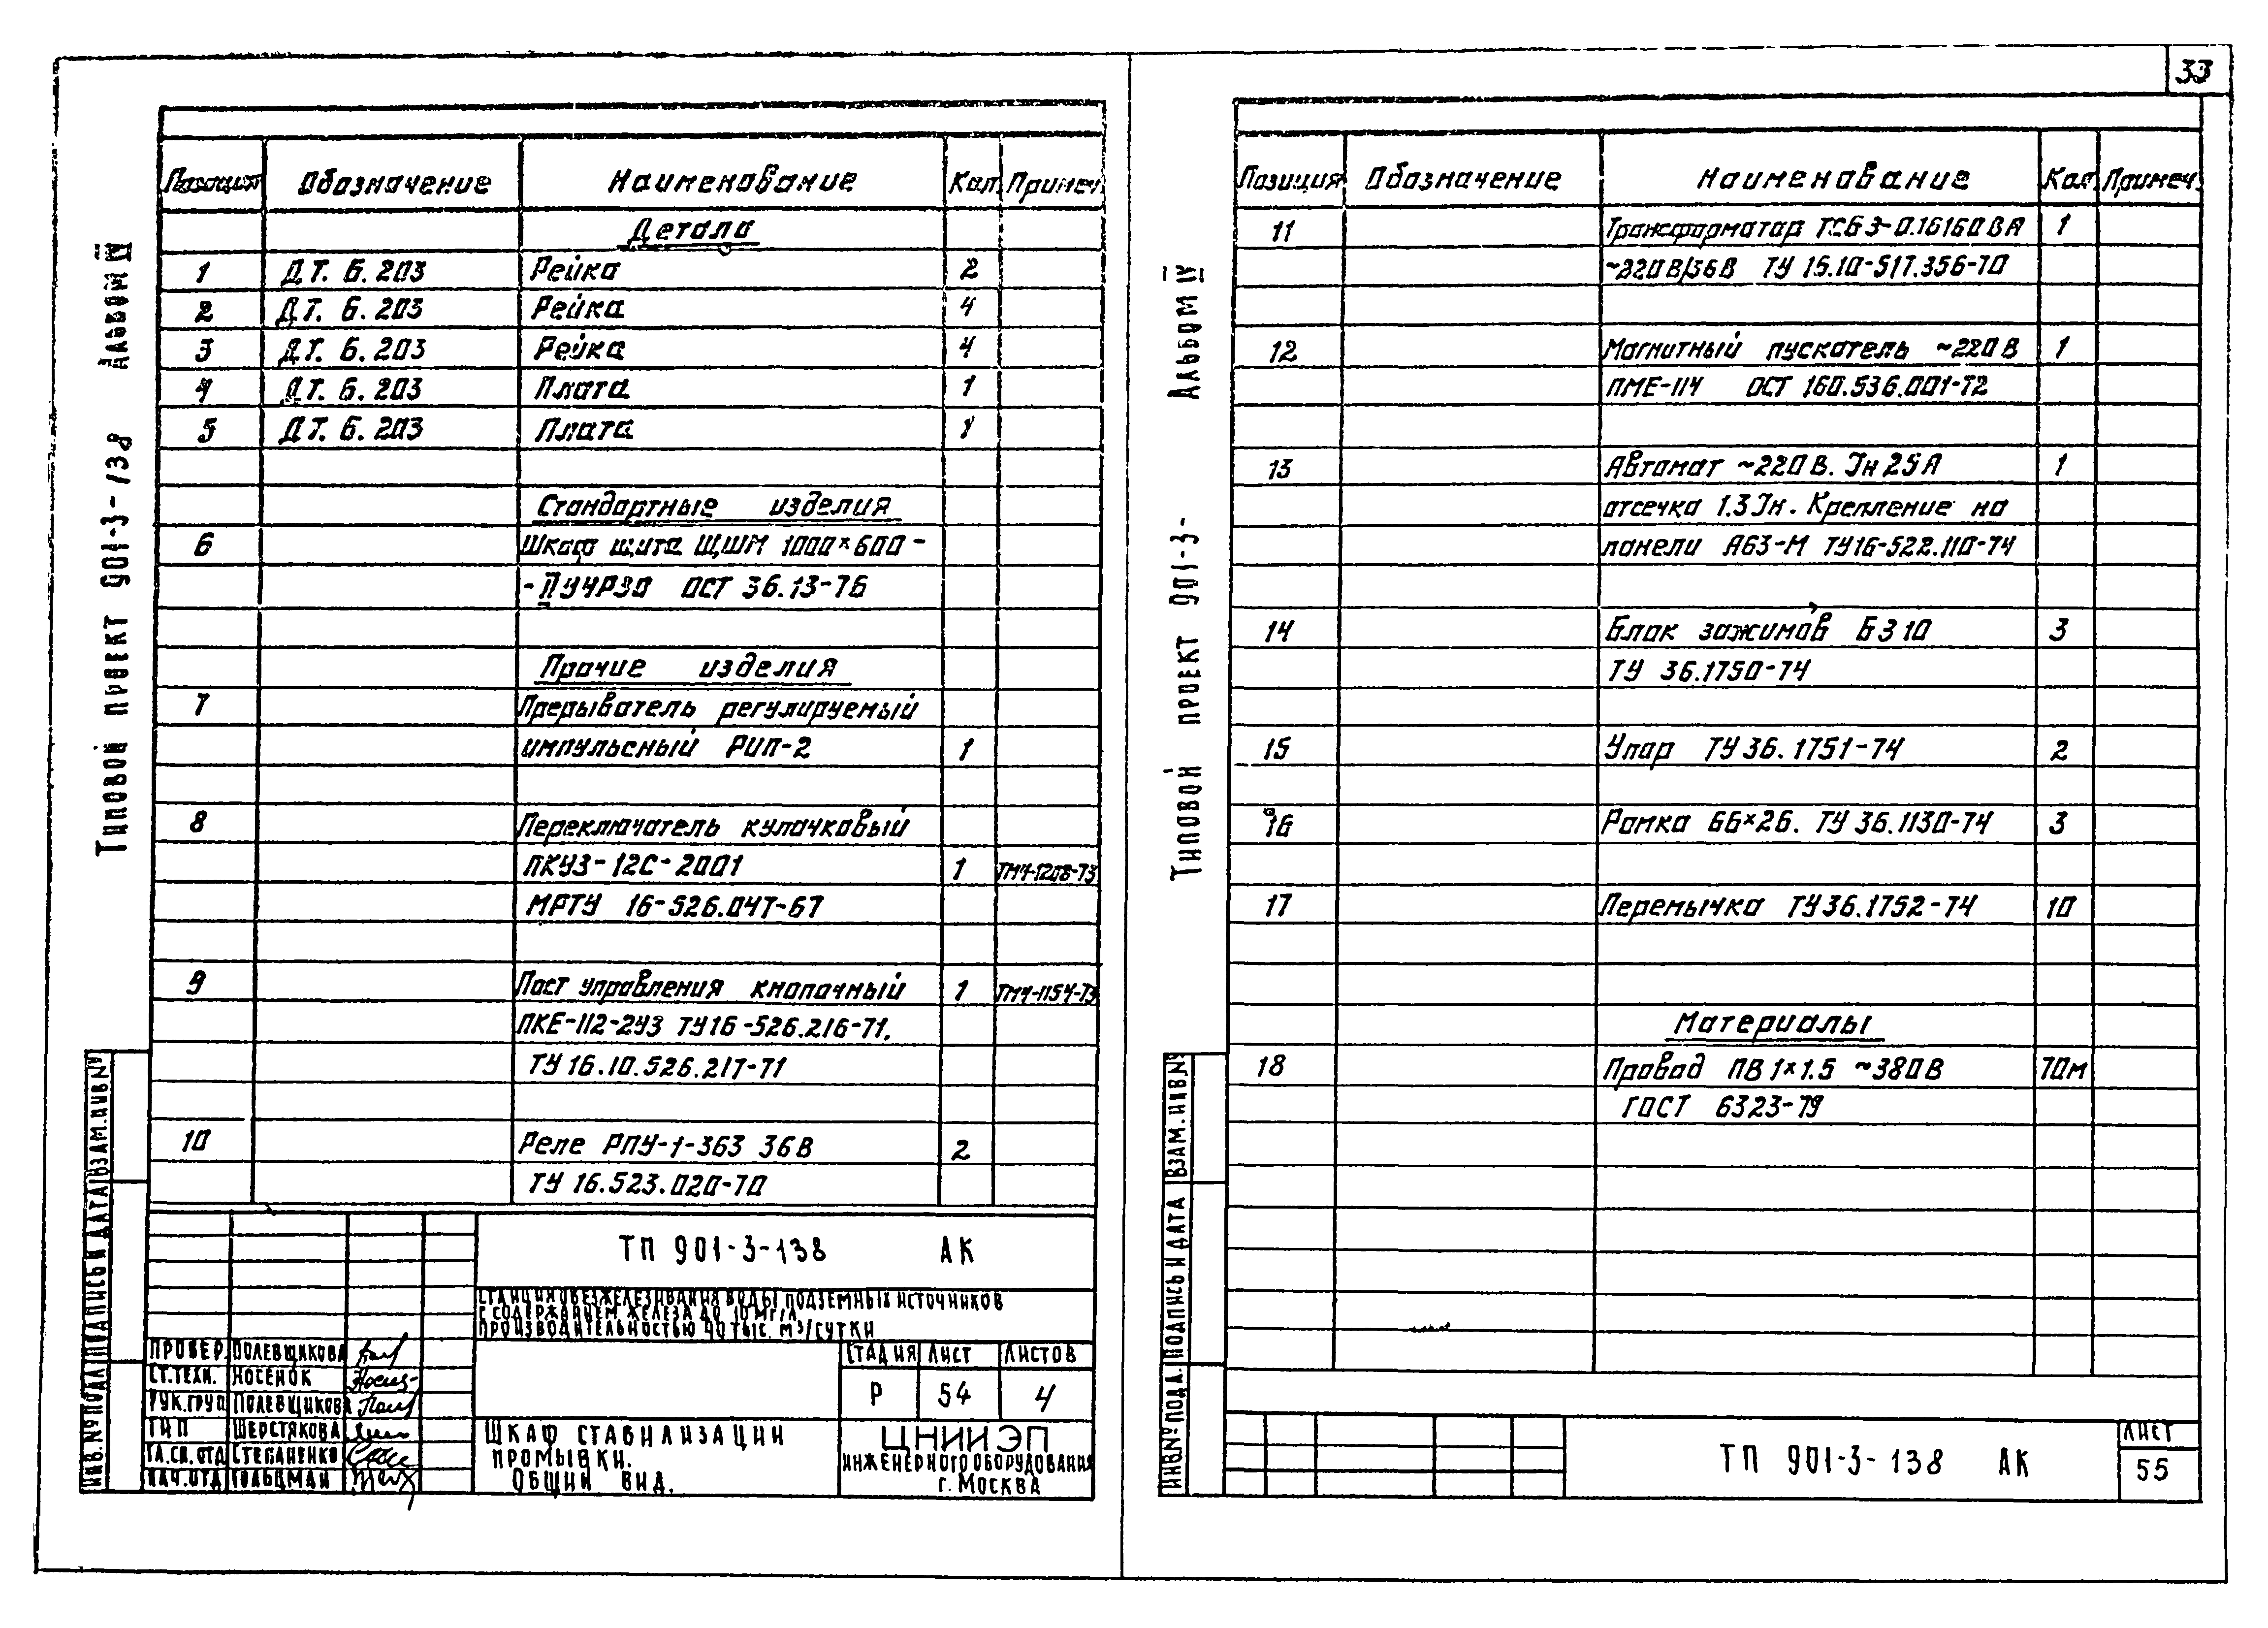 33
Типовой проект 901-3-138 Альбом IV
Позиция Обозначение Наименование Кол. Примеч.
Детали
1 ДТ. Б. 203 Рейка 2
2 ДТ. Б. 203 Рейка 4
3 ДТ. Б. 203 Рейка 4
4 ДТ. Б. 203 Плата 1
5 ДТ. Б. 203 Плата 1
Стандартные изделия
6 Шкаф щита ЩШМ 1000×600-
ОСТ 36.13-76
Прочие изделия
7 Прерыватель регулируемый
импульсный РИП-2 1
8 Переключатель кулачковый
ПКУ3-12С-2001 1 ТМ4-1208-73
МРТУ 16-526.047-67
9 Пост управления кнопочный 1 ТМ4-1154-73
ПКЕ-112-2У3 ТУ16-526.216-71,
ТУ 16.10.526.217-71
10 Реле РПУ-1-363 36В 2
ТУ 16.523.020-70
ТП 901-3-138 АК
Станция обезжелезивания воды подземных источников
с содержанием железа до 10 мг/л
производительностью 40 тыс. м³/сутки
Провер. Полевщикова
Ст.техн. Носенок
Рук.груп. Полевщикова
ГИП Шерстякова
Гл.сп.отд Степаненко
Нач.отд Гольцман
Стадия Лист Листов
Р 54 4
Шкаф стабилизации
промывки.
Общий вид.
ЦНИИЭП
инженерного оборудования
г. Москва
Инв.№ подл. Подпись и дата Взам.инв.№
Типовой проект 901-3- Альбом IV
Позиция Обозначение Наименование Кол. Примеч.
11 Трансформатор ТСБЗ-0.16160ВА 1
~220В/36В ТУ 15.10-517.356-70
12 Магнитный пускатель ~220В 1
ПМЕ-114 ОСТ 160.536.001-72
13 Автомат ~220В. Iн 25А 1
отсечка 1.3Iн. Крепление на
панели А63-М ТУ16-522.110-74
14 Блок зажимов БЗ10 3
ТУ 36.1750-74
15 Упор ТУ36.1751-74 2
16 Рамка 66×26. ТУ36.1130-74 3
17 Перемычка ТУ36.1752-74 10
Материалы
18 Провод ПВ1×1.5 ~380В 70м
ГОСТ 6323-79
ТП 901-3-138 АК
Лист
55
Инв.№ подл. Подпись и дата Взам.инв.№